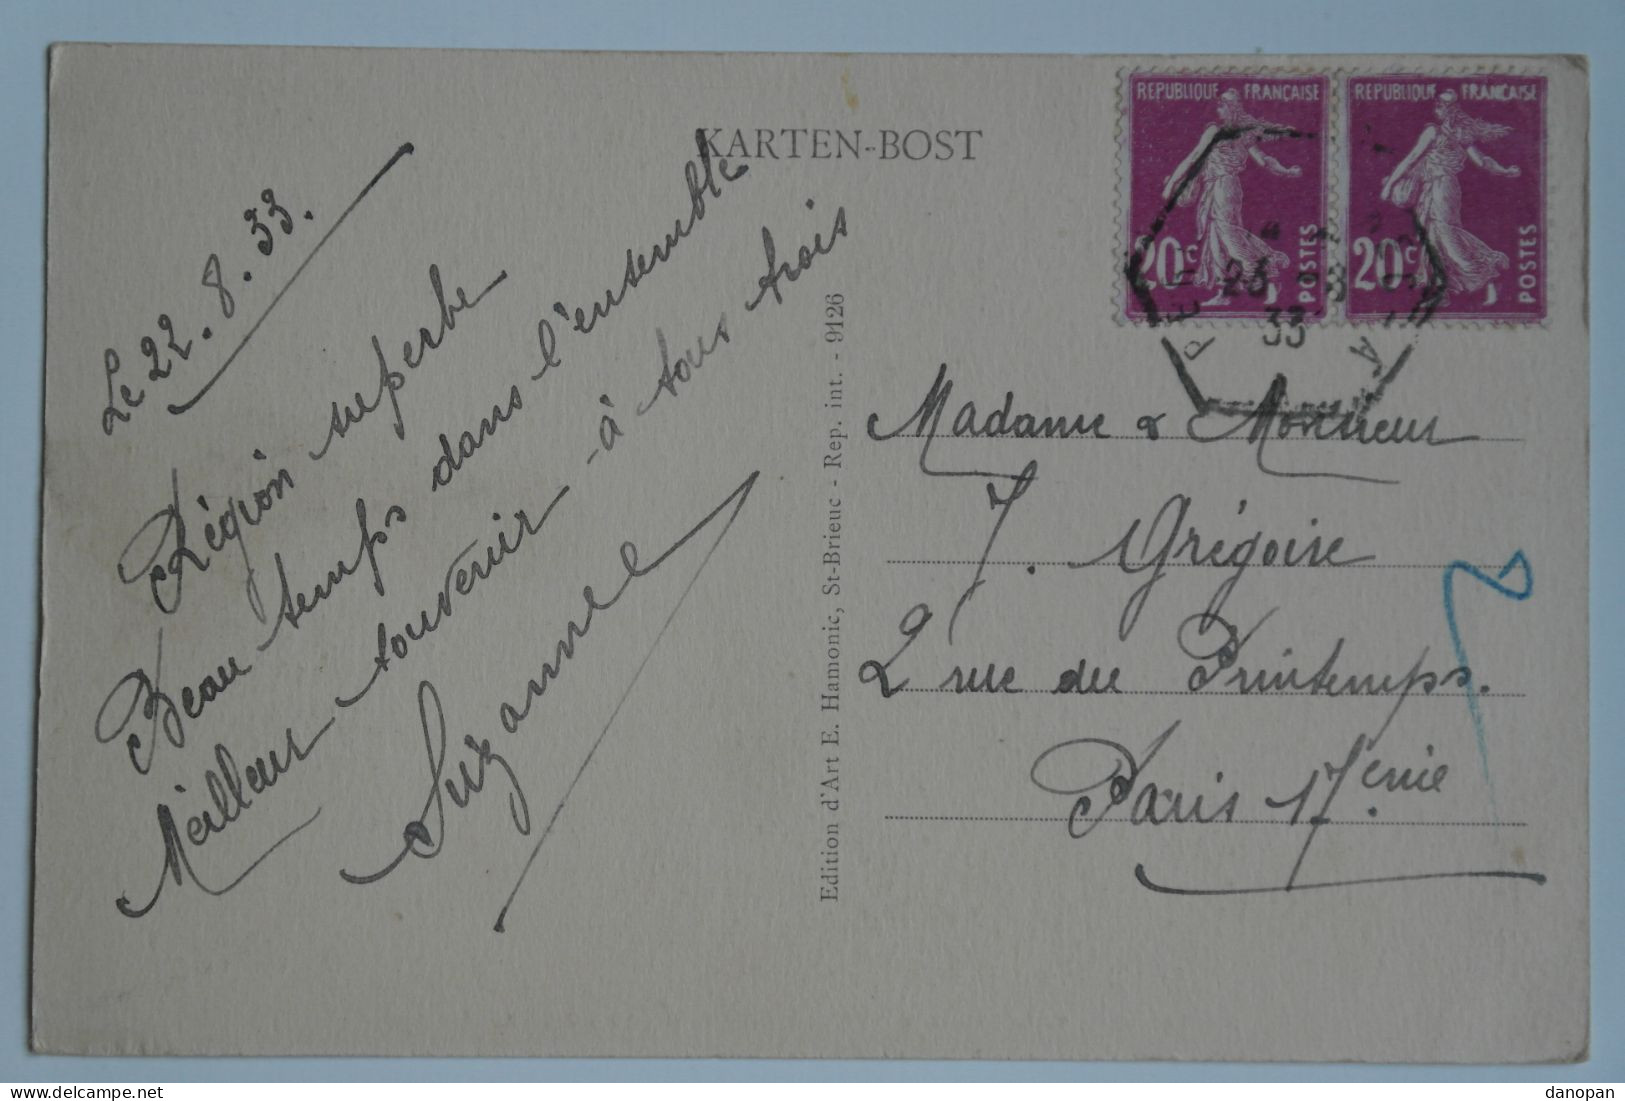 KARTEN-BOST
Le 22.8.33.
Région superbe
Beau temps dans l'ensemble
Meilleur souvenir à tous trois
Suzanne
Edition d'Art E. Hamonic, St-Brieuc - Rep. int. - 9126
REPUBLIQUE FRANÇAISE
20c
POSTES
REPUBLIQUE FRANÇAISE
20c
POSTES
33
Madame & Monsieur
J. Grégoire
2 rue du Printemps.
Paris 17.eme
danopan